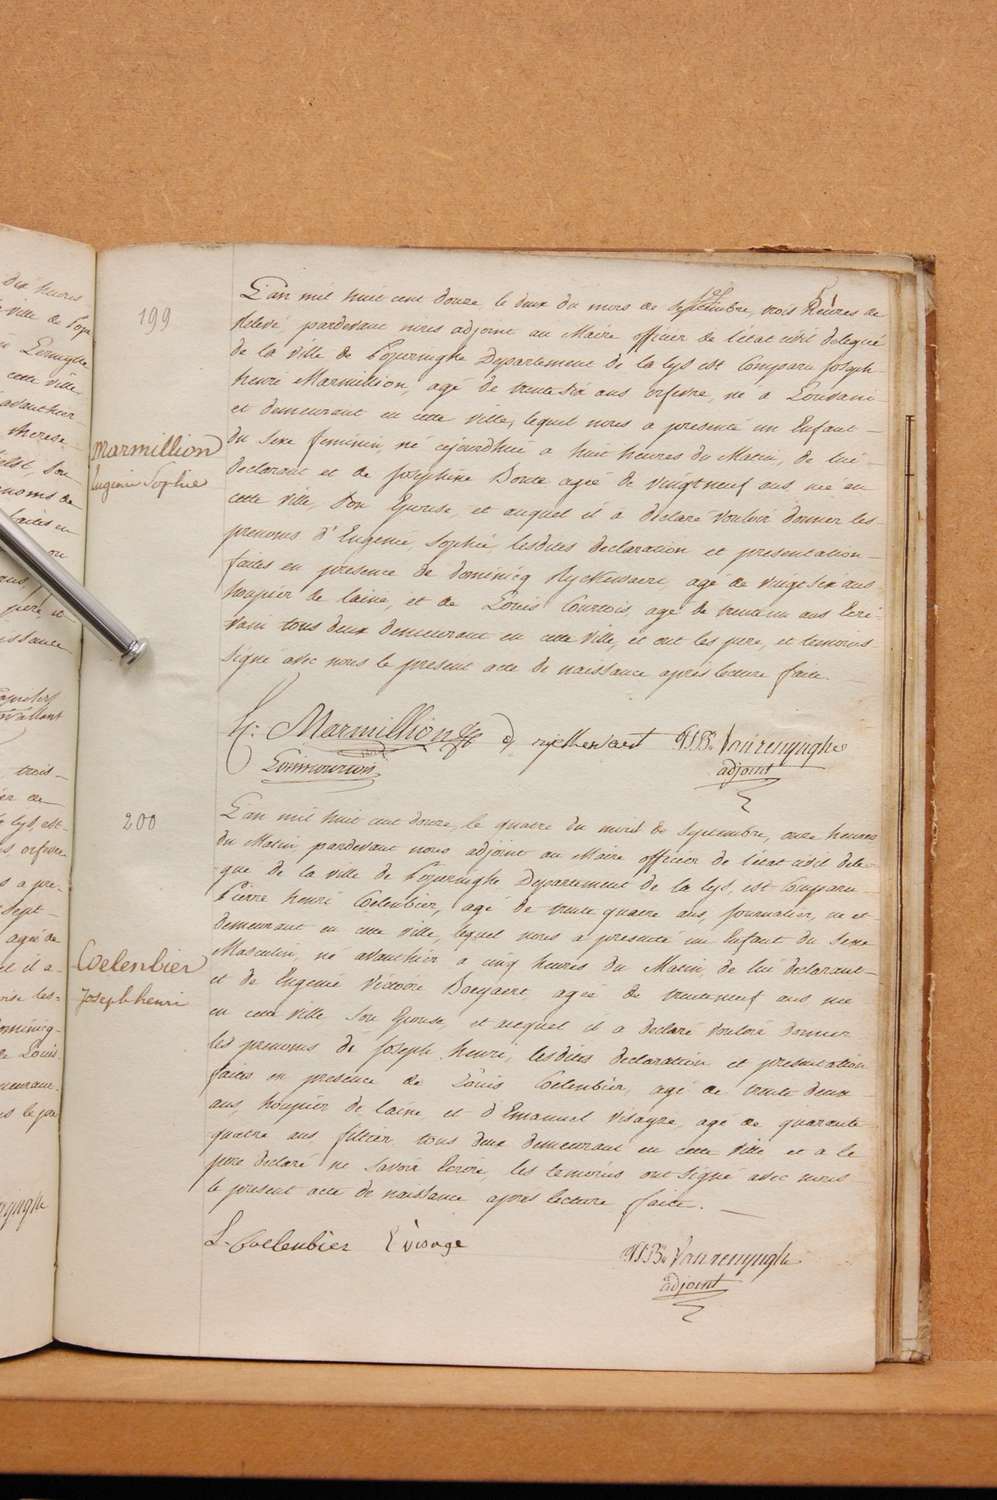 dix heures
ville de Pope
cette ville
avanthier
therese
noms de
faites en
ou
pere, et
issance
trois
lys, est
s orfevre
s a pre-
sept
agé de
et il a
les-
Dominicq
de Louis
199
Marmillion
Eugenie Sophie
L'an mil huit cent douze le deux du mois de septembre, trois heures de
Relevé, pardevant nous adjoint au Maire officier de l'etat civil delegué
de la ville de Poperinghe Departement de la lys est Comparu Joseph
henri Marmillion, agé de trente six ans orfevre, né a Louvain
et demeurant en cette ville, lequel nous a presenté un Enfant
du Sexe feminin, né cejourdhui a huit heures du Matin, de lui
declarant et de Josephine Bonte agée de vingt neuf ans née en
cette ville, Son Epouse, et auquel il a declaré vouloir donner les
prenoms d'Eugenie, Sophie, lesdites declaration et presentation
faites en presence de Dominicq Ryckewaert, agé de vingt six ans
houpier de laine, et de Louis Courtois, agé de trente un ans Ecri-
vain tous deux demeurant en cette ville, et ont les pere, et temoins
Signé avec nous le present acte de naissance apres lecture faite.
H: Marmillion d ryckewaert PJB. Vanrenynghe
adjoint
200
Coelenbier
Joseph henri
L'an mil huit cent douze, le quatre du mois de Septembre, onze heures
du Matin, pardevant nous adjoint au Maire officier de l'etat civil dele-
gué de la ville de Poperinghe Departement de la lys, est Comparu
Pierre henri Coelenbier, agé de trente quatre ans, journalier, né et
demeurant en cette ville, lequel nous a presenté un Enfant du Sexe
Masculin, né avanthier a cinq heures du Matin, de lui declarant
et de Eugenie Victoire Baeyaert, agée de trente neuf ans née
en cette ville Son Epouse, et auquel il a declaré vouloir donner
les prenoms de Joseph henri, lesdites declaration et presentation
faites en presence de Louis Coelenbier, agé de trente deux
ans, houpier de laine et d'Emanuel Visagre, agé de quarante
quatre ans, filtier, tous deux demeurant en cette ville et a le
pere declaré ne Savoir Ecrire, les temoins ont Signé avec nous
le present acte de naissance apres lecture faite.
L. Coelenbier E visage PJB. Vanrenynghe
adjoint